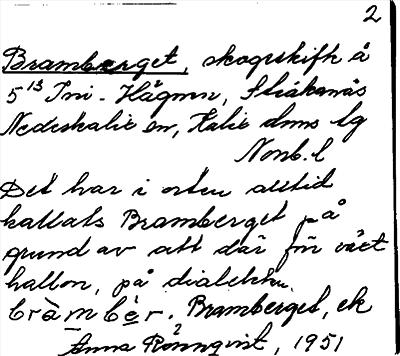 2
Bramberget, skogsskifte å
5¹³ Ini-Hågmon, Stråkanäs
Nederkalix sn, Kalix doms lg
Nonb. l
Det har i orten alltid
kallats Bramberget på
grund av att där för växt
hallon, på dialekten
bràmbèr. Bramberget, ek
Anna Rönnqvist, 1951